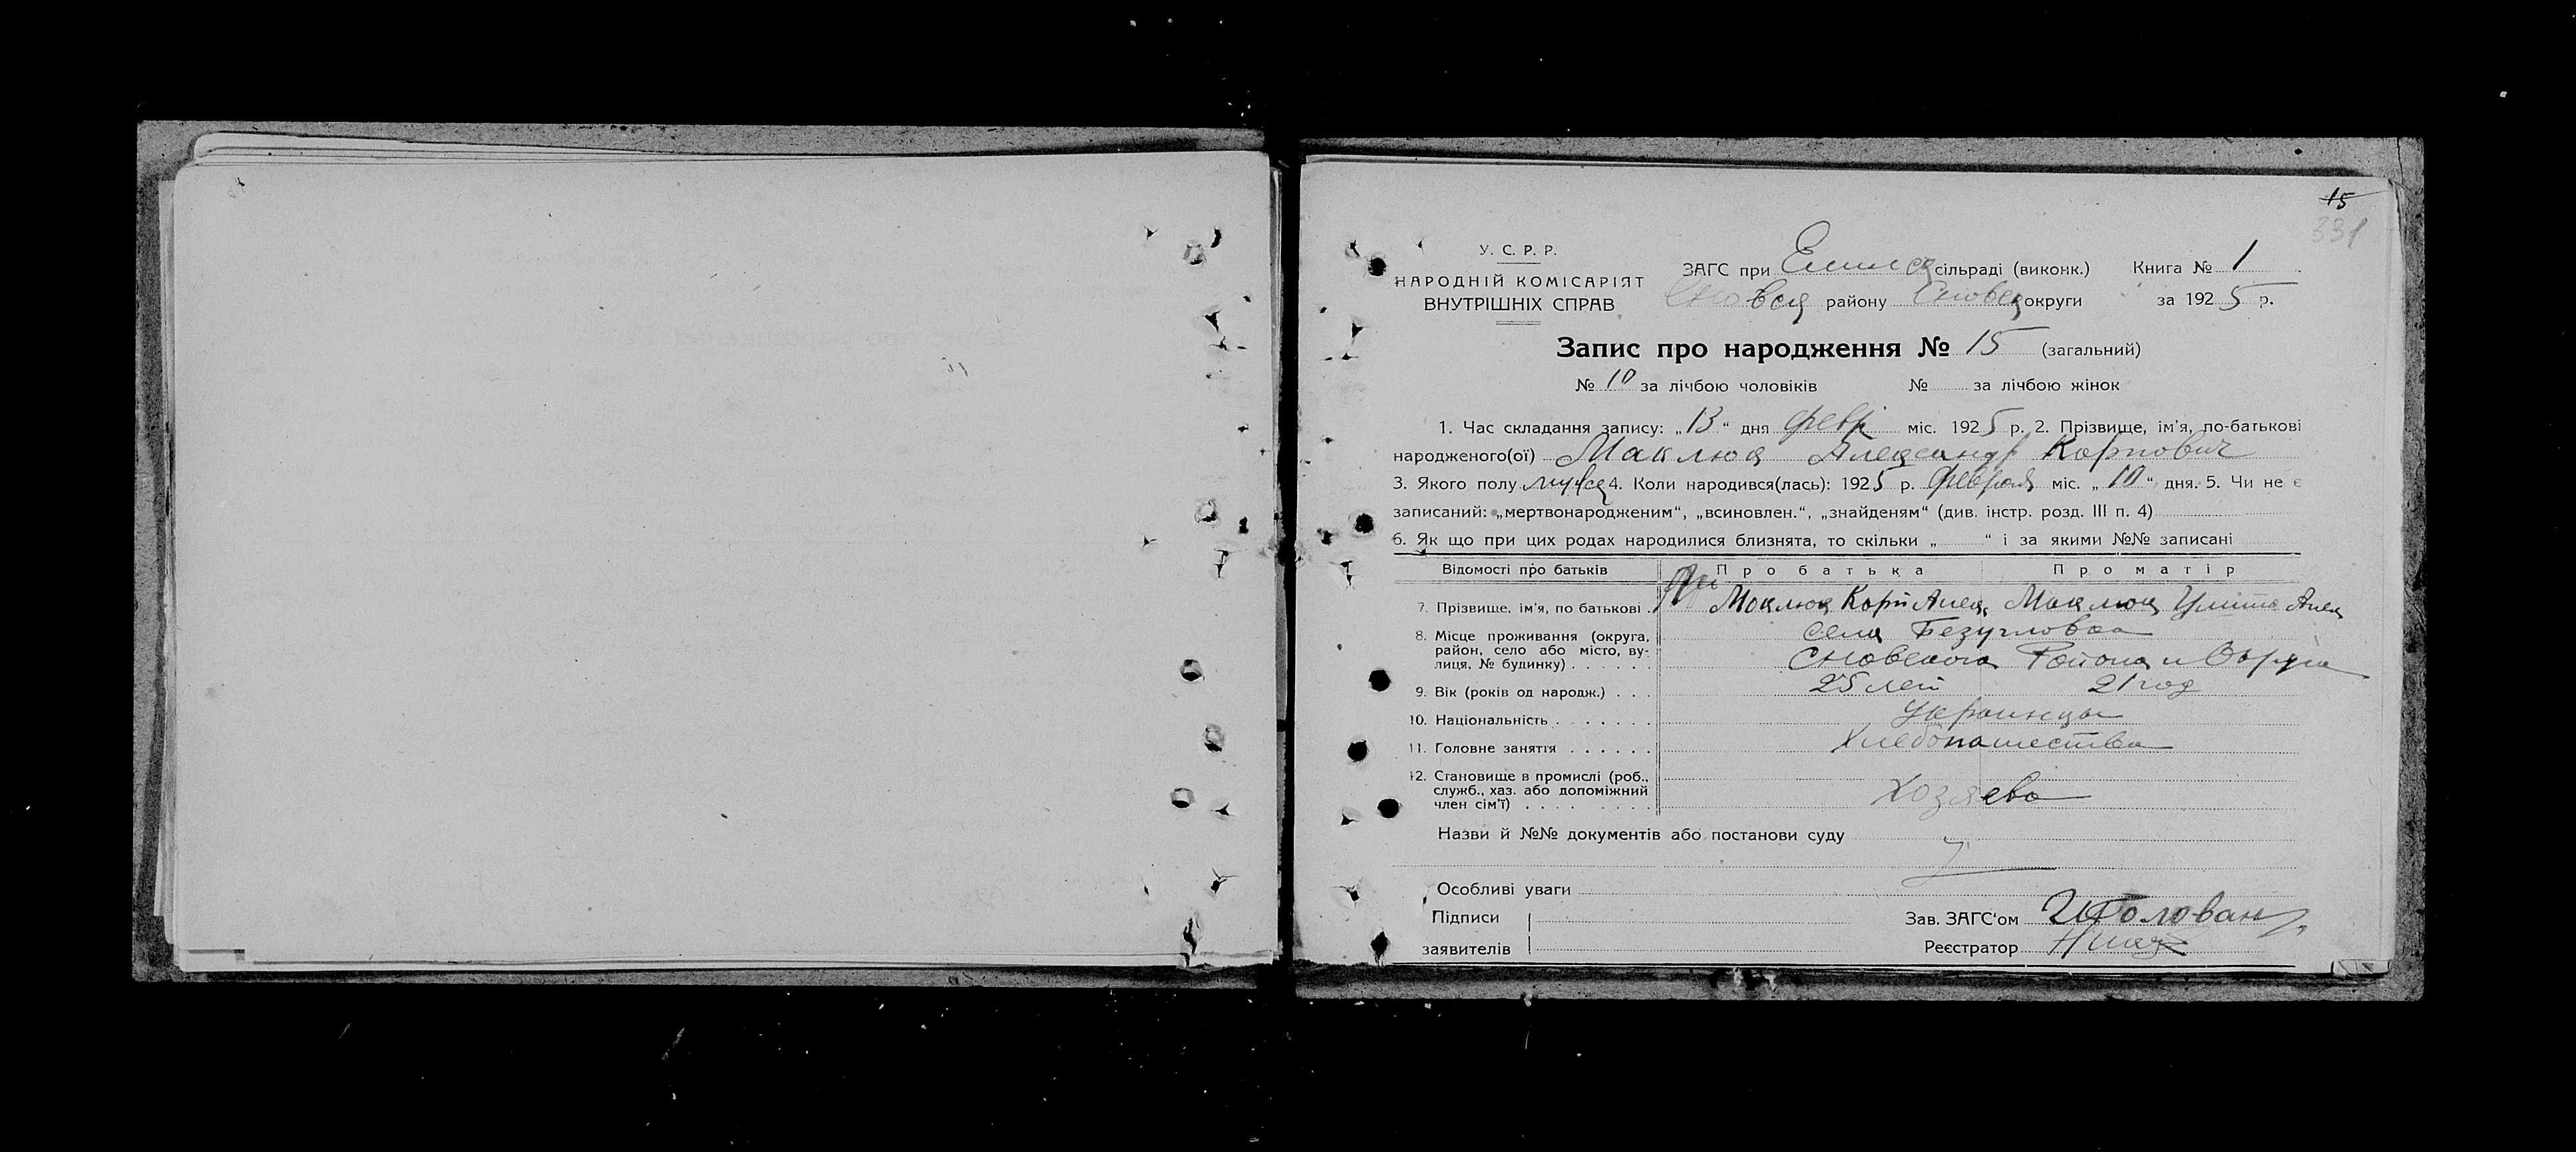 15
331
У. С. Р. Р.
НАРОДНІЙ КОМІСАРІЯТ
ВНУТРІШНІХ СПРАВ
ЗАГС при сільраді (виконк.) Книга № 1
району округи за 1925 р.
Запис про народження № 15 (загальний)
№ 10 за лічбою чоловіків № за лічбою жінок
1. Час складання запису: „13“ дня февр міс. 1925 р. 2. Прізвище, ім'я, по-батькові
народженого(ої) Маклюк Александр Корпович
3. Якого полу мужск 4. Коли народився(лась): 1925 р. февраля міс. „10“ дня. 5. Чи не є
записаний: „мертвонародженим“, „всиновлен.“, „знайденям“ (див. інстр. розд. III п. 4)
6. Як що при цих родах народилися близнята, то скільки „ “ і за якими №№ записані
Відомості про батьків Про батька Про матір
7. Прізвище, ім'я, по батькові . Маклюк Корп Алек Маклюк Улита Алек
8. Місце проживання (округа, район, село або місто, вулиця, № будинку) . . . . . . села Безугловка
Сновского Района и Округа
9. Вік (років од народж.) . . . 25 лет 21 год
10. Національність . . . . . . . Украинцы
11. Головне заняття . . . . . . Хлебопашество
12. Становище в промислі (роб., служб., хаз. або допоміжний член сім'ї) . . . . . . . . Хозяева
Назви й №№ документів або постанови суду
Особливі уваги
Підписи
заявителів
Зав. ЗАГС'ом Голован
Реєстратор